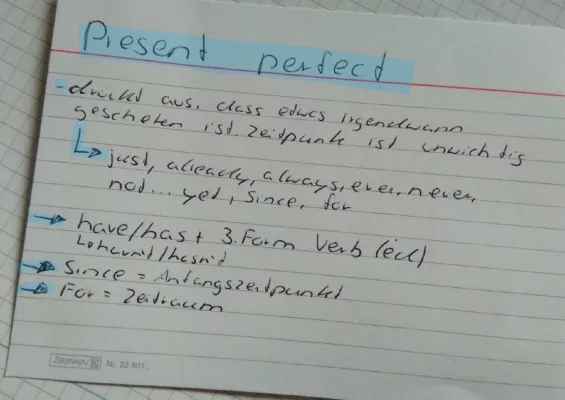 Present perfect
- drückt aus, dass etwas irgendwann
geschehen ist. Zeitpunk ist unwichtig
↳ just, already, always, ever, never,
not... yet, since, for
→ have/has + 3. Form Verb (ed)
↳ haven't/hasn't
→ Since = Anfangszeitpunkt
→ For = Zeitraum
BRUNNEN Nr. 22 601